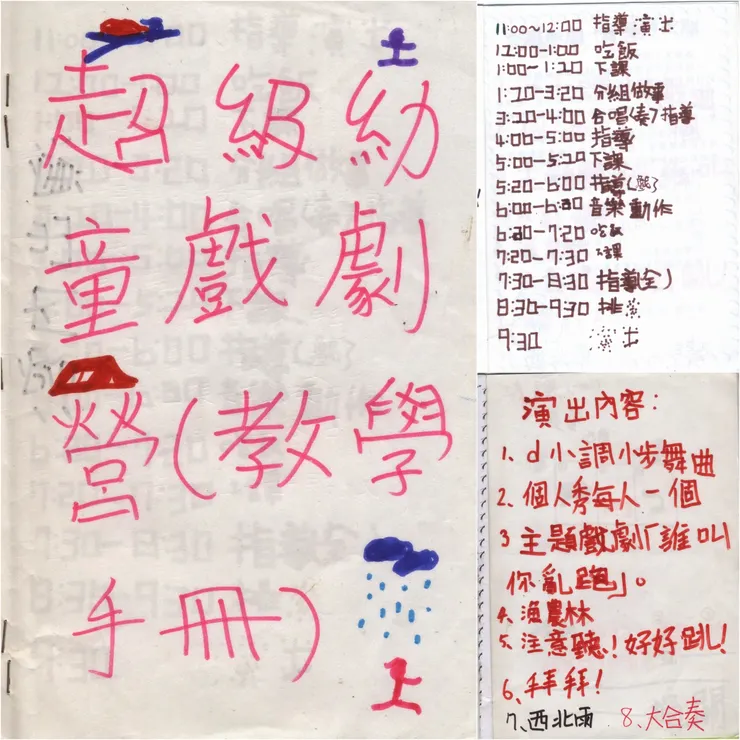 超級幼
童戲劇
營(教學
手冊)
11:00~12:00 指導演出
12:00-1:00 吃飯
1:00-1:20 下課
1:20-3:20 分組做事
3:20-4:00 合唱(奏)指導
4:00-5:00 指導
5:00-5:20 下課
5:20-6:00 指導
6:00-6:30 音樂動作
6:30-7:20 吃飯
7:20-7:30 下課
7:30-8:30 指導(全)
8:30-9:30 排演
9:30 演出
演出內容:
1. d小調小步舞曲
2. 個人秀每人一個
3 主題戲劇「誰叫
你亂跑」。
4. 漁農林
5. 注意聽!好好跳!
6. 拜拜!
7、西北雨 8、大合奏